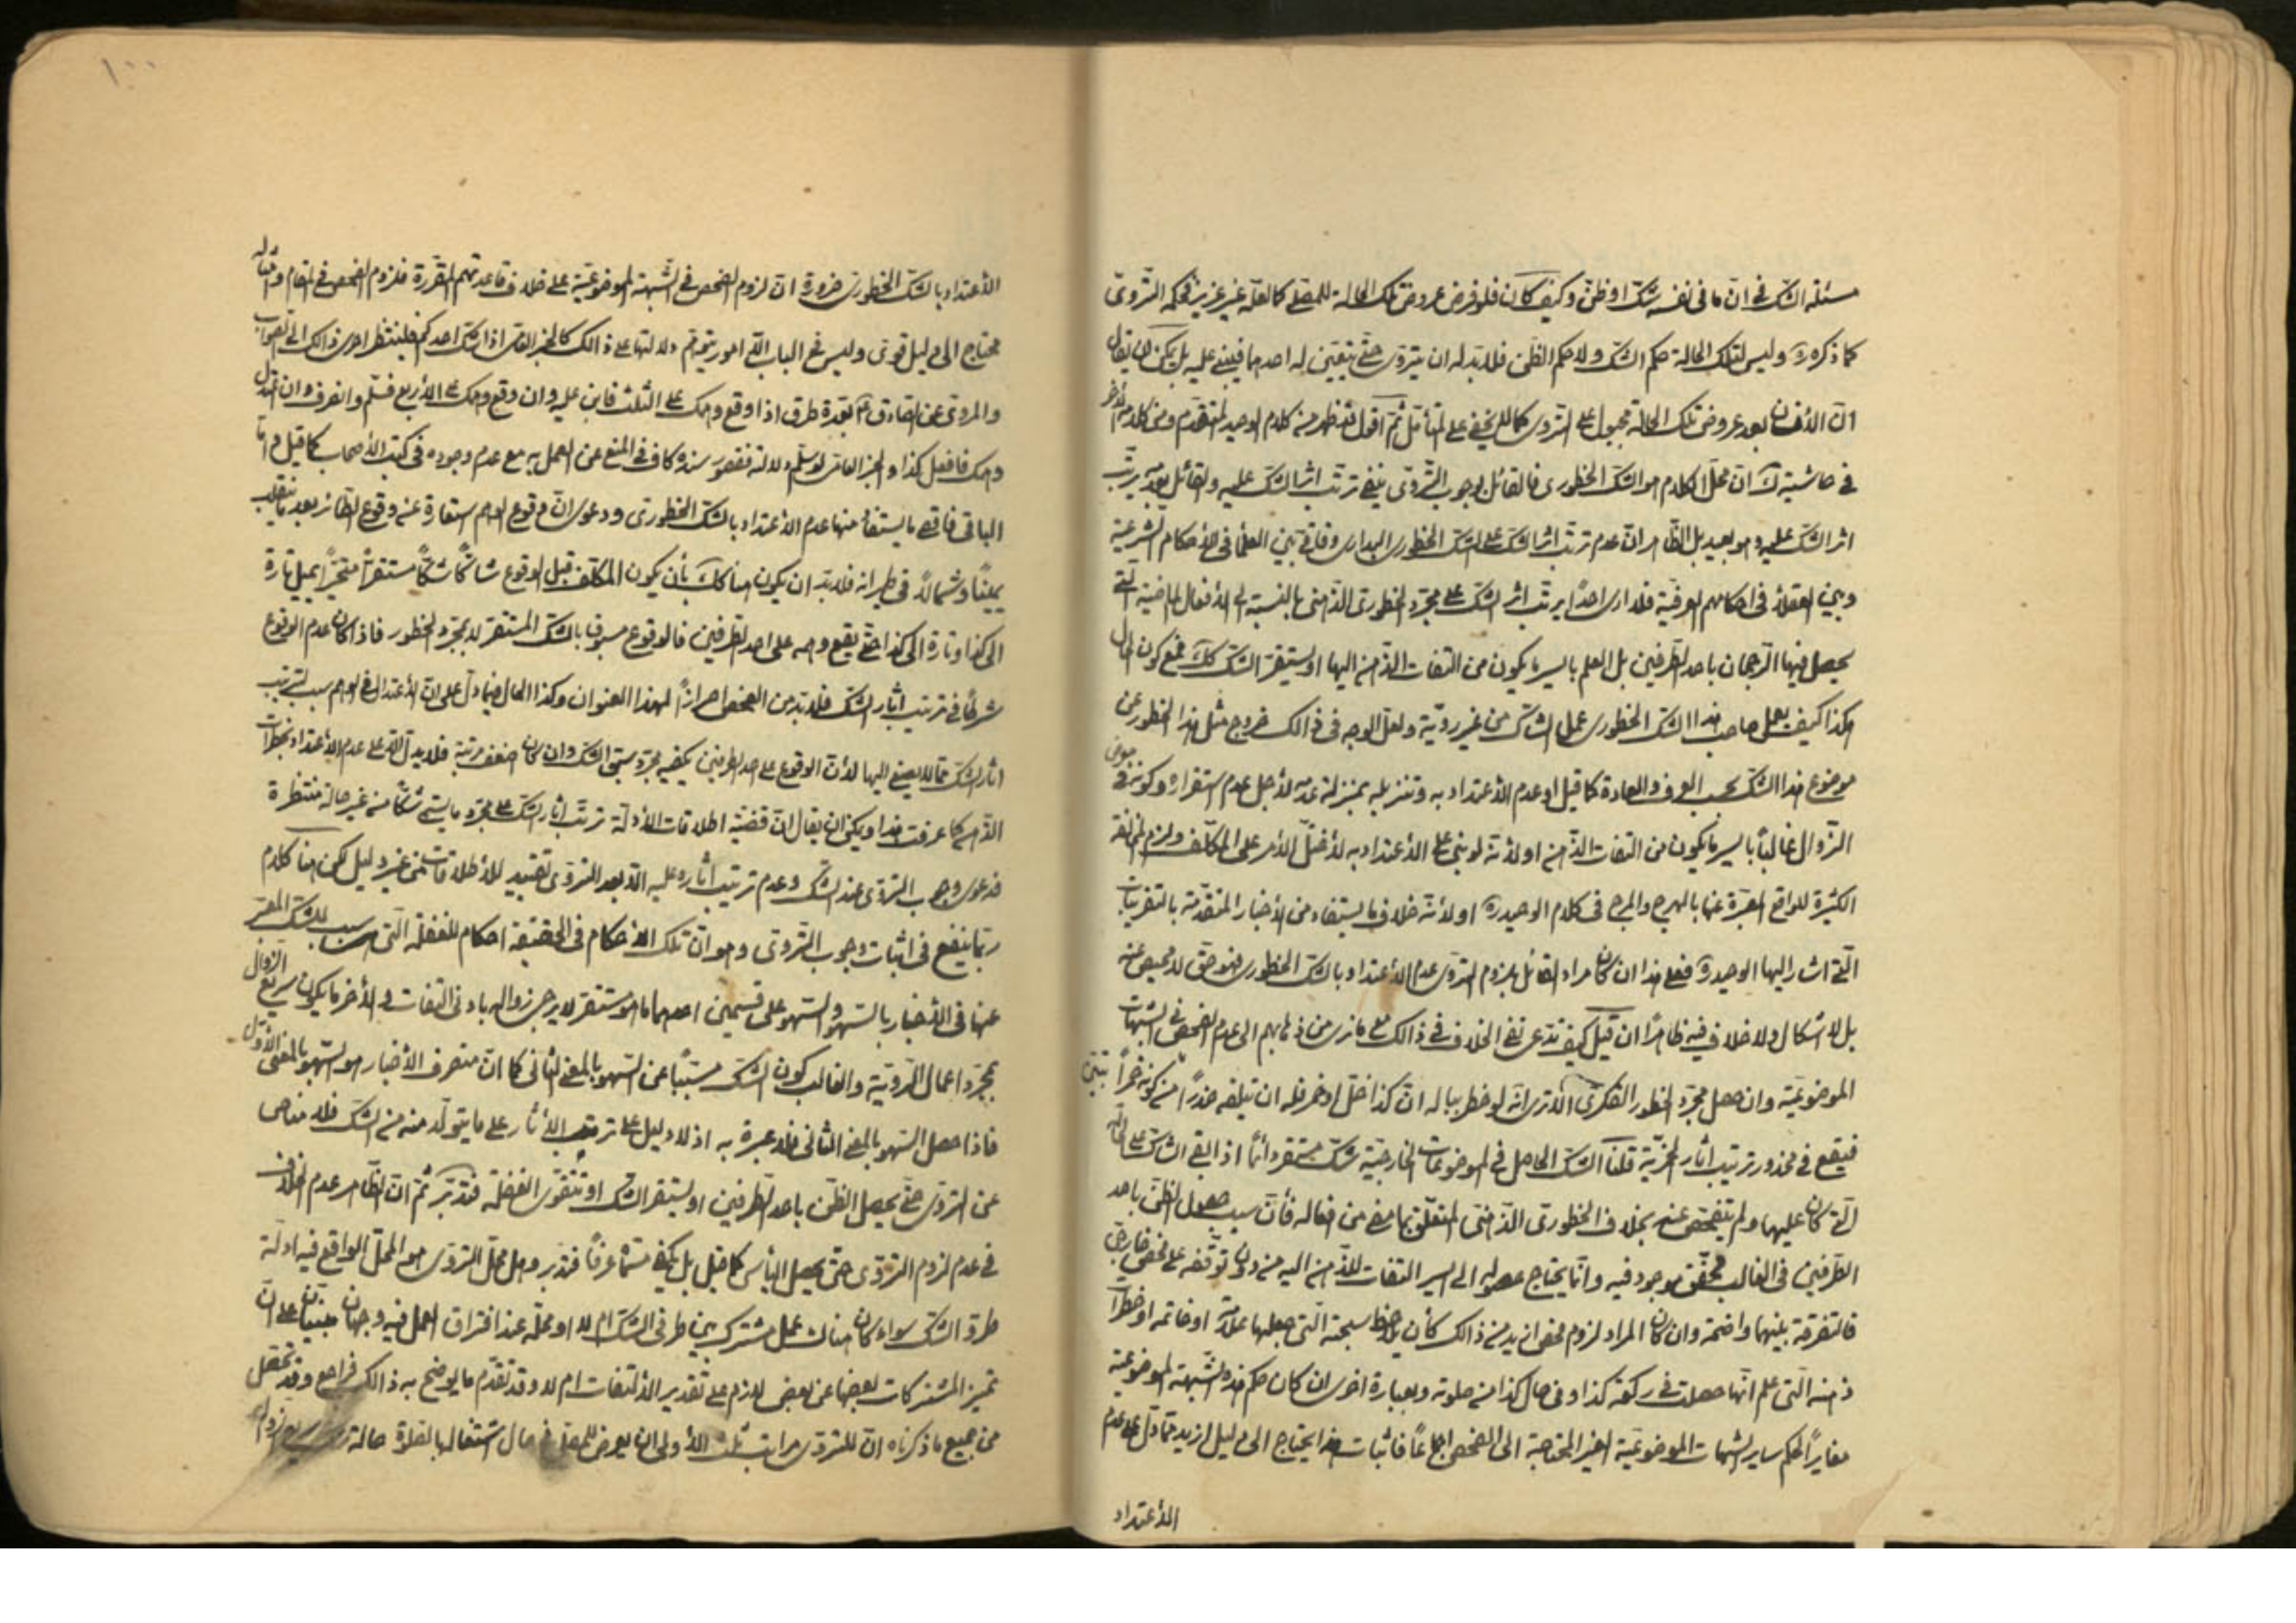 مسئلة الشك في ان ما في نفسه شك او ظن وكيف كان فلو فرض عروض تلك الحالة للمصلى كالعلة غير عزيز فحكمه التروى
كما ذكره وليس لتلك الحالة حكم الشك ولا حكم الظن فلا بد له ان يتروى حتى يتعين له احدهما فيبنى عليه بل يمكن ان يقال
ان الأنسان بعد عروض تلك الحالة مجبول على التروى كما لا يخفى على المتأمل ثم اقول قد ظهر من كلام الوحيد المتقدم ومن كلامه الاخر
في حاشيته ان محل الكلام هو الشك الخطورى فالقائل بوجوب التروى ينفى ترتب اثر الشك عليه والقائل بعدمه يرتب
اثر الشك عليه وهو بعيد بل الظاهر ان عدم ترتب اثر الشك على الشك الخطورى البدارى وفاقى بين العلماء في الأحكام الشرعية
وبين العقلاء في احكامهم العرفية فلا ارى احدا يرتب اثر الشك على مجرد الخطورى الذهنى بالنسبة الى الأفعال الماضية التى
يحصل فيها الرجحان باحد الطرفين بل العلم باليسر ما يكون من التفات الذهن اليها او يستقر الشك كك فمع كون الحال
هكذا كيف يعمل صاحب هذا الشك الخطورى عمل الشاك من غير روية ولعل الوجه في ذالك خروج مثل هذا الخطور عن
موضوع هذا الشك بحسب العرف والعادة كما قيل او عدم الأعتداد به وتنزيله بمنزلة عدمه لأجل عدم استقراره وكونه في معرض
الزوال غالبا باليسر ما يكون من التفات الذهن او لأنه لو بنى على الأعتداد به لأختل الأمر على المكلف ولزم المخالفة
الكثيرة للواقع المعبرة عنها بالهرج والمرج في كلام الوحيد ره او لأنه خلاف ما يستفاد من الأخبار المتقدمة بالتقريبات
التى اشار اليها الوحيد ره فعلى هذا ان كان مراد القائل بلزوم التروى عدم الأعتداد بالشك الخطورى فهو حق لا محيص عنه
بل لا اشكال ولا خلاف فيه ظاهرا ان قيل كيف تدعى نفى الخلاف في ذالك على ما نرى من ذهابهم الى عدم الفحص في الشبهات
الموضوعية وان حصل مجرد الخطور الفكرى الا ترى انه لو خطر بباله ان كذا خل او خمر فله ان يتلفه حذرا من كونه خمرا تبين
فيقع في محذور ترتيب اثار الخمرية قلنا الشك الحاصل في الموضوعات الخارجية شك مستقر دائما اذا بقى الشاك على حالته
التى كان عليها ولم يتفحص عنه بخلاف الخطورى الذهنى المتعلق بما مضى من افعاله فأن سبب حصول الظن باحد
الطرفين في الغالب محقق موجود فيه وانما يحتاج حصوله الى اليسر التفات للذهن اليه من دون توقفه على فحص خارجى
فالتفرقة بينهما واضحة وان كان المراد لزوم فحص ازيد من ذالك كأن يلاحظ سبحته التى جعلها علامة او خاتمه او خطرات
ذهنه التى علم انها حصلت في ركعة كذا وفي حال كذا من صلوته وبعبارة اخرى ان كان حكم هذه الشبهة الموضوعية
مغايرا لحكم ساير الشبهات الموضوعية الغير المحتاجة الى الفحص اجماعا فاثبات هذا يحتاج الى دليل ازيد مما دل على عدم
الأعتداد
١٠٠
الأعتداد بالشك الخطورى ضرورة ان لزوم الفحص في الشبهة الموضوعية على خلاف قاعدتهم المقررة فلزوم الفحص في المقام وامثاله
محتاج الى دليل قوى وليس في الباب الا امور يتوهم دلالتها على ذالك كالخبر العامى اذا شك احدكم فلينتظر احرى ذالك الى الصواب
والمروى عن الصادق ع بعدة طرق اذا وقع وهمك على الثلث فابن عليه وان وقع وهمك على الأربع فسلم وانصرف وان اعتدل
وهمك فافعل كذا والخبر العامى لو سلم دلالته فقصور سنده كاف في المنع عن العمل به مع عدم وجوده في كتب الأصحاب كما قيل واما
الباقى فاقصى ما يستفاد منها عدم الأعتداد بالشك الخطورى ودعوى ان وقوع الوهم استعارة عن وقوع الطائر بعد ما يتقلب
يمينا وشمالا في طيرانه فلا بد ان يكون هنا كك بأن يكون المكلف قبل الوقوع شاكا شكا مستقرا متحيرا يميل تارة
الى كذا وتارة الى كذا حتى يقع وهمه على احد الطرفين فالوقوع مسبوق بالشك المستقر لا بمجرد الخطور فاذا كان عدم الوقوع
شرطا في ترتيب اثار الشك فلا بد من الفحص احرازا لهذا العنوان وكذا الحال فيما دل على ان الأعتدال في الوهم سبب لترتيب
اثار الشك مما لا يصغى اليها لأن الوقوع على احد الطرفين يكفيه مجرد سبق الشك وان كان اضعف مرتبة فلا يدل الا على عدم الأعتداد بخطرات
الذهن كما عرفت هذا ويمكن ان يقال ان قضية اطلاقات الأدلة ترتب اثار الشك على مجرد ما يسمى شكا من غير حالة منتظرة
فدعوى وجوب التروى عند الشك وعدم ترتيب اثاره عليه الا بعد التروى تقييد للأطلاقات من غير دليل لكن هنا كلام
ربما ينفع في اثبات وجوب التروى وهو ان تلك الأحكام في الحقيقة احكام للغفلة التى هى سبب للشك المعبر
عنها في الأخبار بالسهو والسهو على قسمين احدهما ما هو مستقر لا يرجى زواله بادنى التفات والأخر ما يكون سريع الزوال
بمجرد اعمال الروية والغالب كون الشك مسببا عن السهو بالمعنى الثانى كما ان منصرف الأخبار هو السهو بالمعنى الأول
فاذا حصل السهو بالمعنى الثانى فلا عبرة به اذ لا دليل على ترتيب الأثار على ما يتولد منه من الشك فلا مناص
عن التروى حتى يحصل الظن باحد الطرفين او يستقر الشك او تتقوى الغفلة فتدبر ثم ان الظاهر عدم الخلاف
في عدم لزوم التروى حتى يحصل اليأس كما قيل بل يكفى مسماه عرفا فتدبر وهل محل التروى هو المحل الواقع فيه اولة
طرو الشك سواء كان هناك عمل مشترك بين طرفى الشك ام لا او محله عند افتراق العمل فيه وجهان مبنيان على ان
تميز المشتركات بعضها عن بعض لازم على تقدير الألتفات ام لا وقد تقدم ما يوضح به ذالك فراجع وقد تحصل
من جميع ما ذكرناه ان للتروى مراتب ثلث الأولى ان يعرض للمصلى في حال اشتغاله بالصلوة حالة سريع زواله